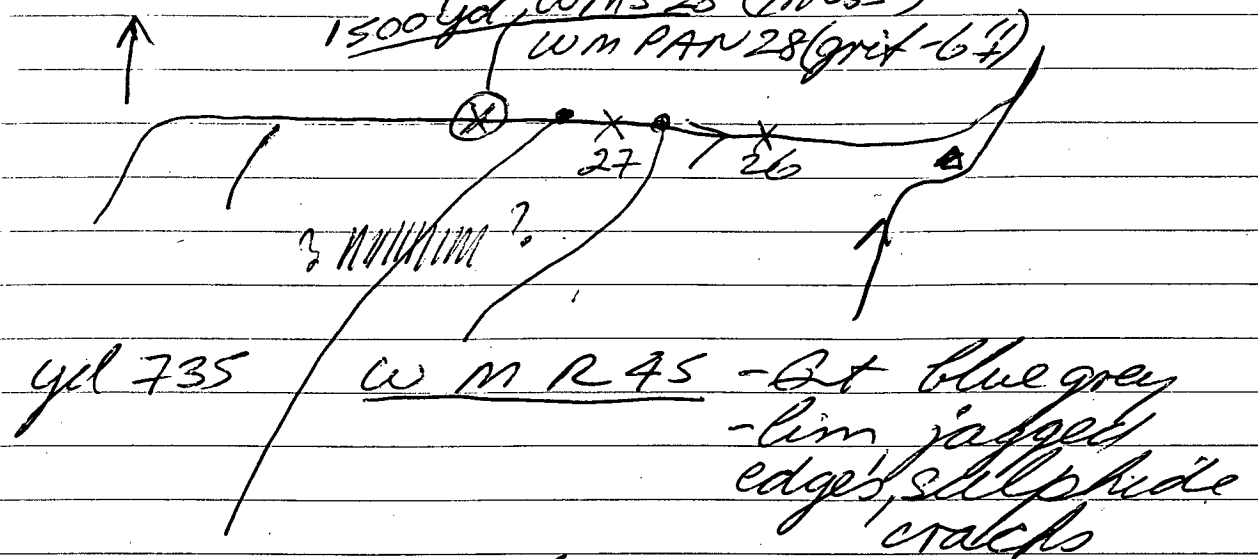 1500 yd WMS 28
WM PAN 28 (grit -6")
27 26
? ?
yd 735 WMR 45 - Qt blue grey
- lim jagged
edges, sulphide
cracks